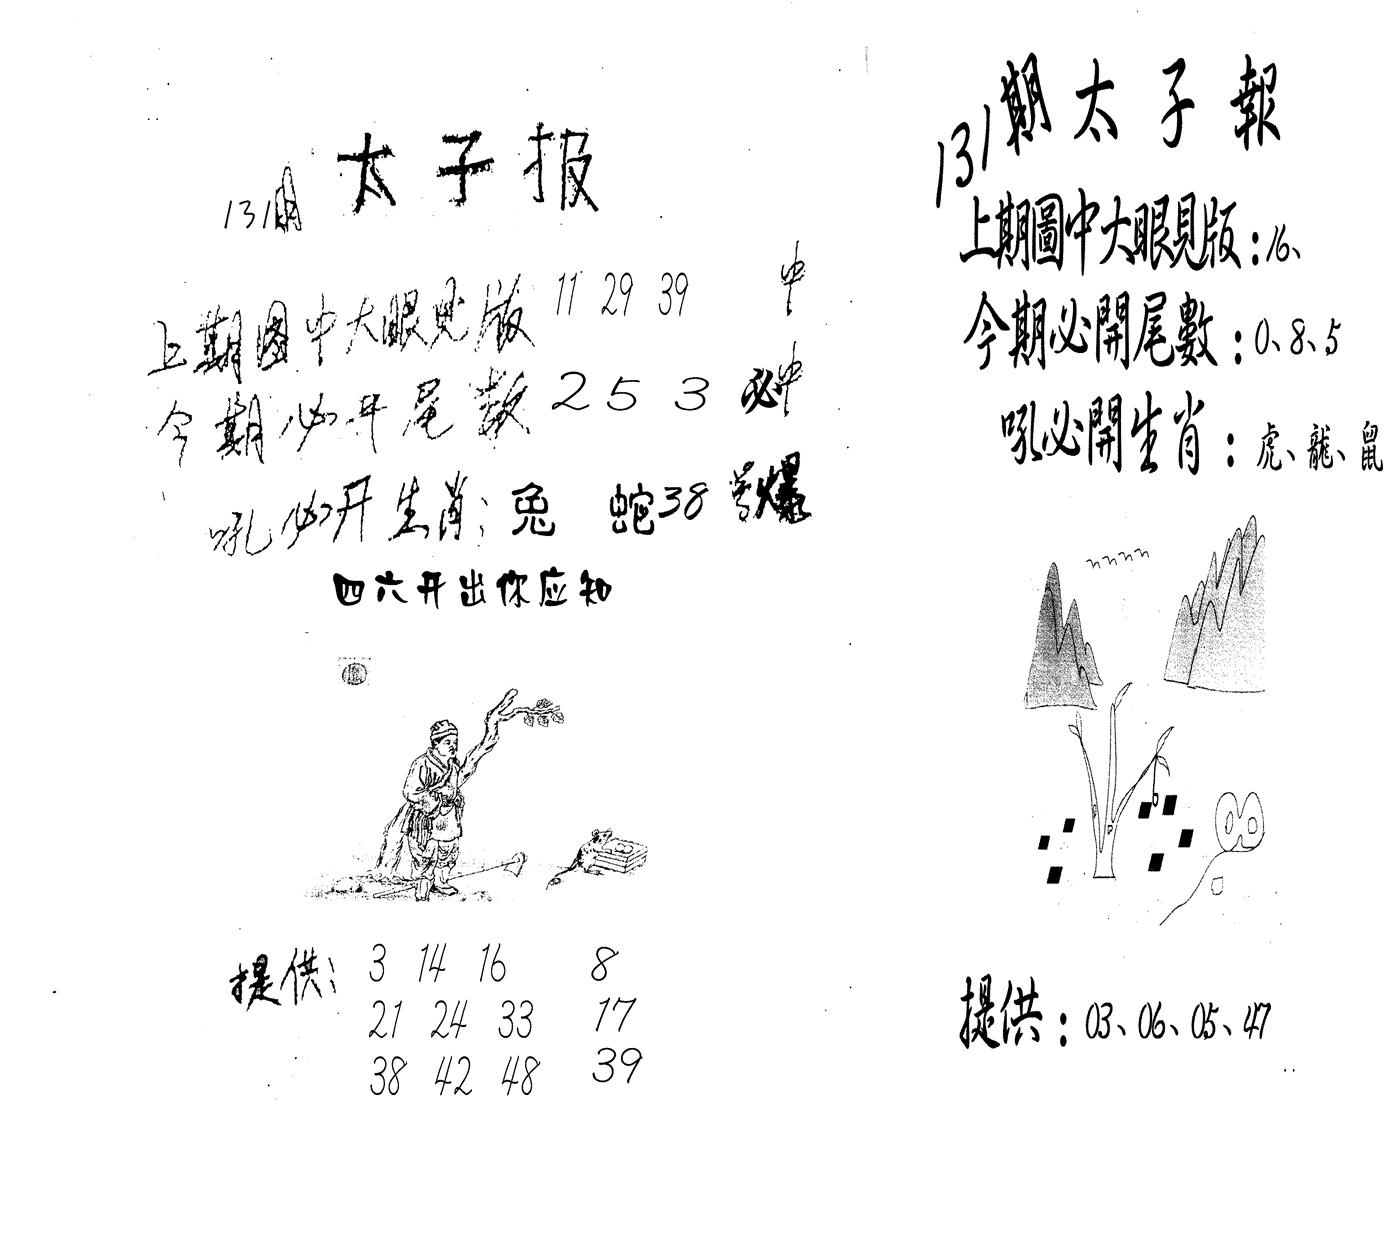 太子报
131期
上期图中大眼见版 11 29 39 中
今期必开尾数 2 5 3 必中
吼必开生肖: 兔 蛇38号爆
四六开出你应知
提供: 3 14 16 8
21 24 33 17
38 42 48 39
131期太子報
上期圖中大眼見版:16、
今期必開尾數:0、8、5
吼必開生肖:虎、龍、鼠
提供:03、06、05、47